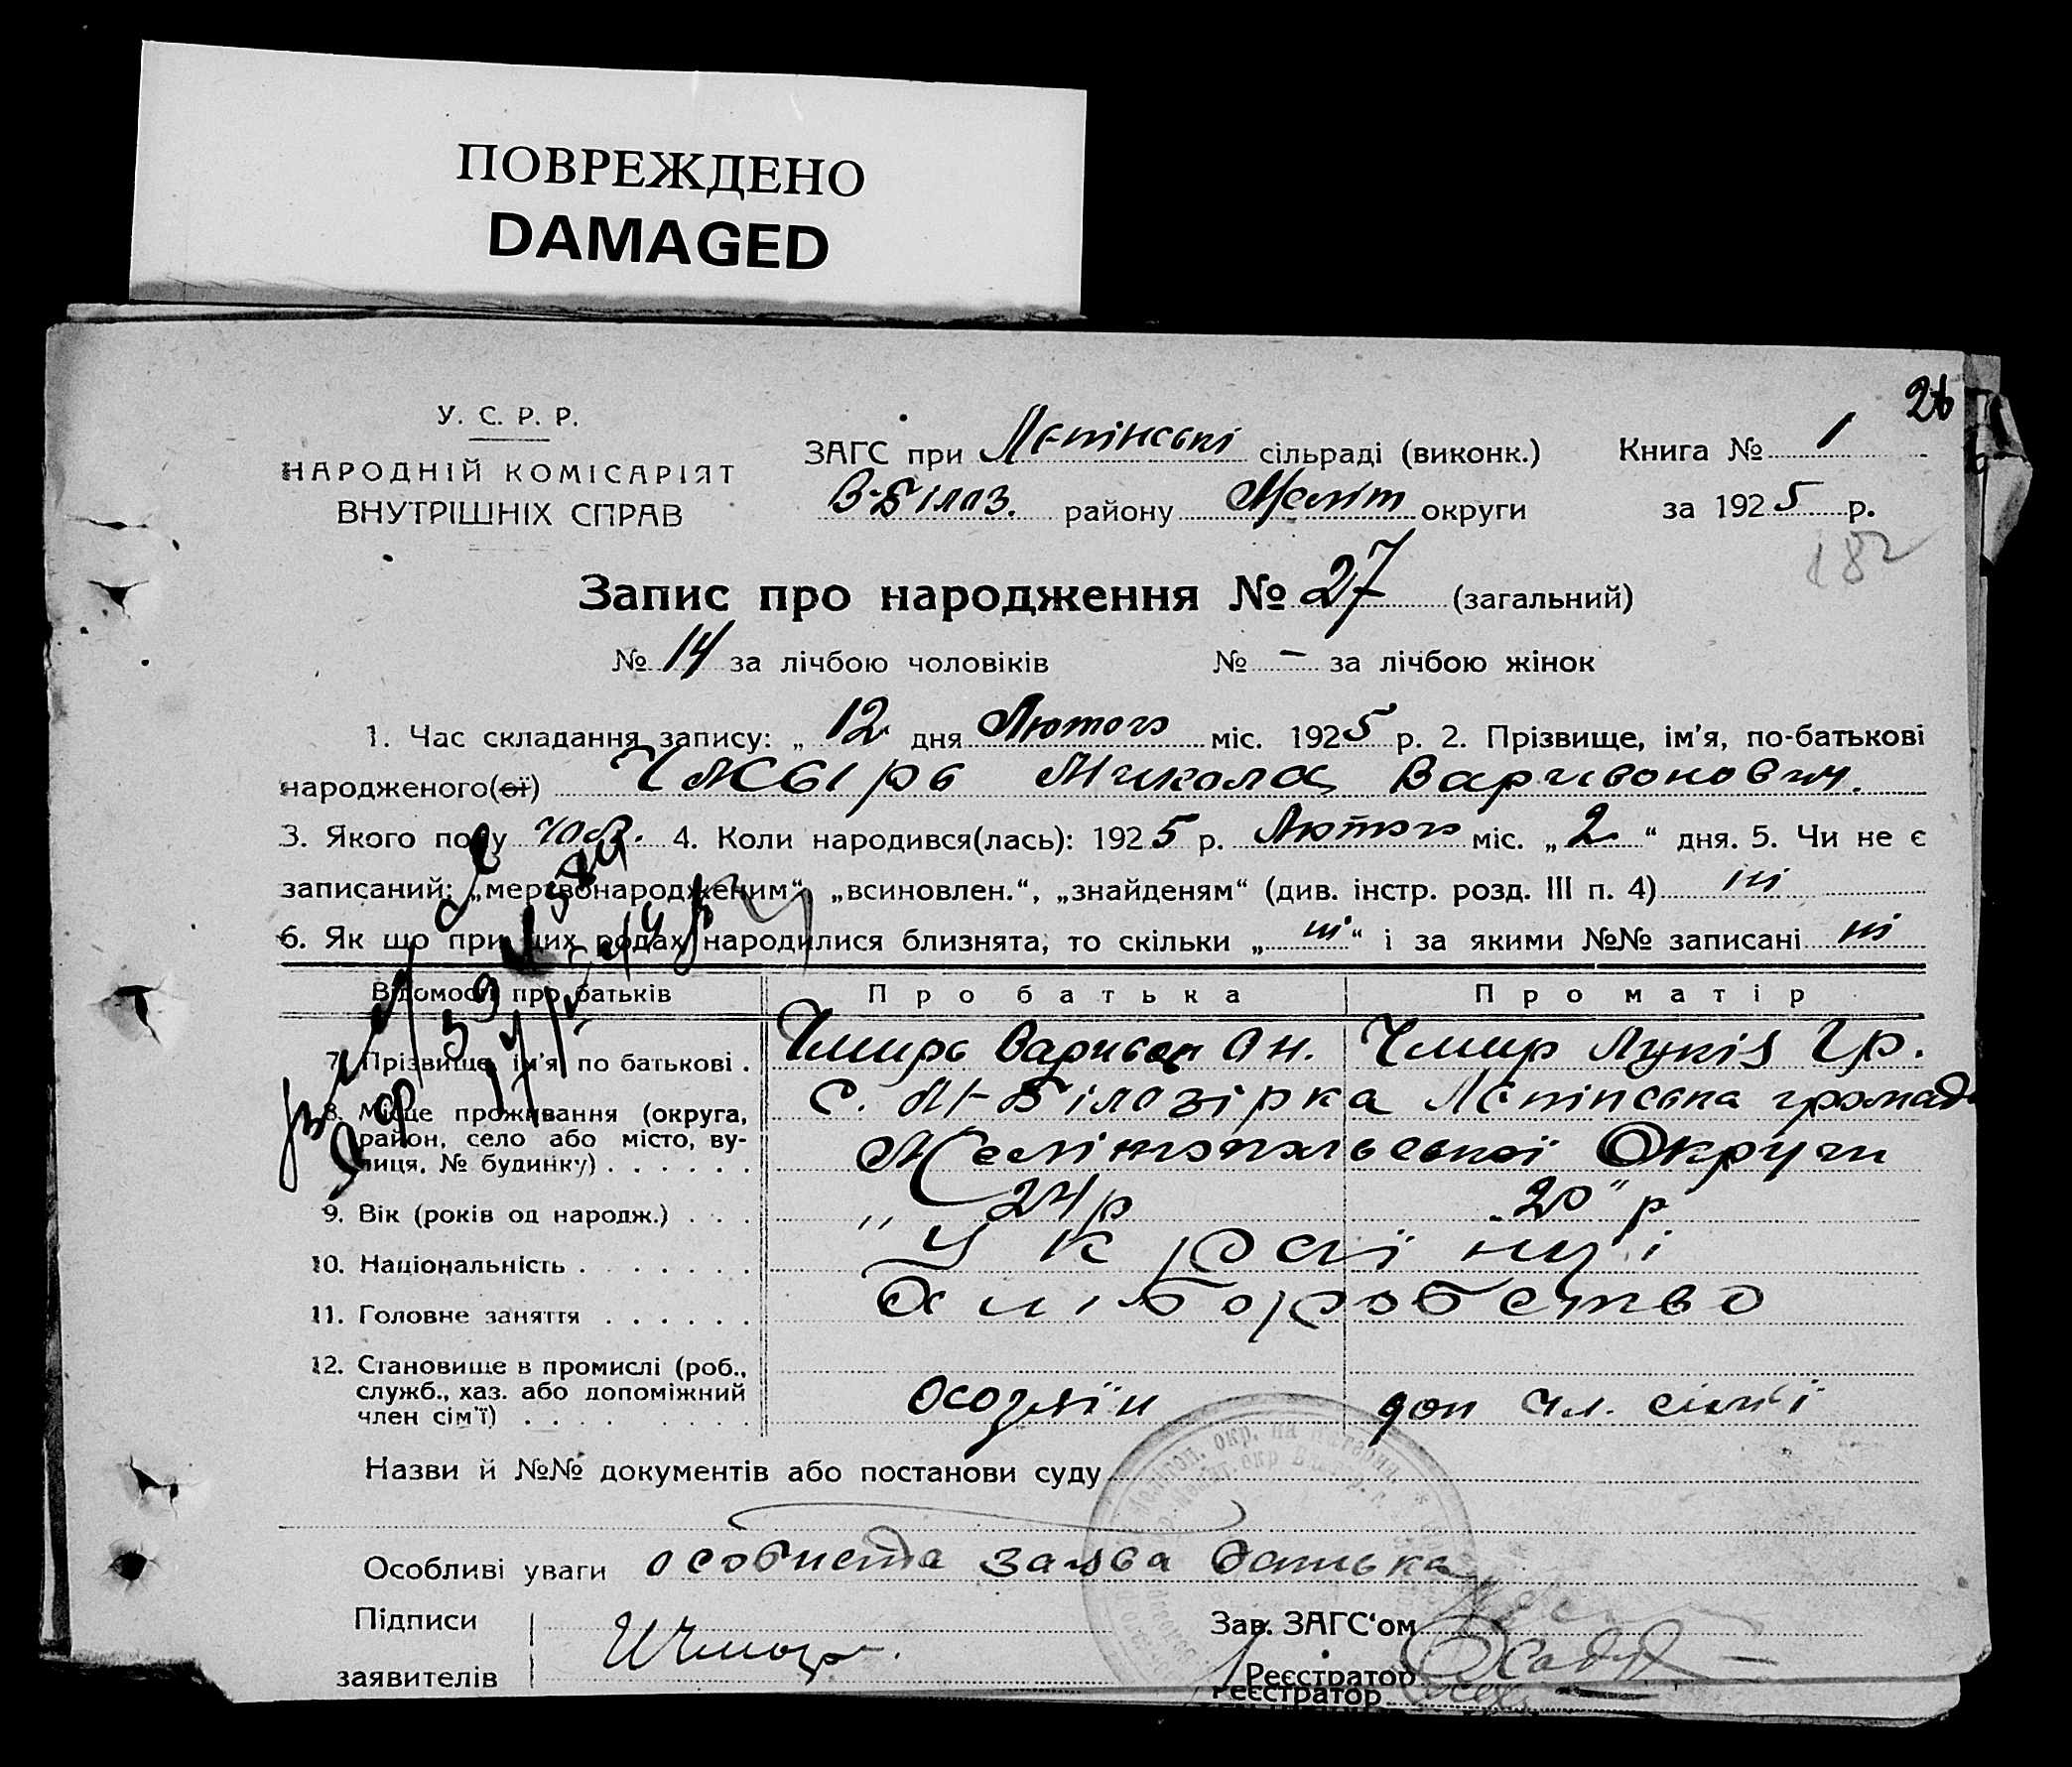 ПОВРЕЖДЕНО
DAMAGED
26
У. С. Р. Р.
НАРОДНІЙ КОМІСАРІЯТ
ВНУТРІШНІХ СПРАВ
ЗАГС при сільраді (виконк.) Книга № 1
В-Білоз. району Меліт округи за 1925 р.
182
Запис про народження № 27 (загальний)
№ 14 за лічбою чоловіків № – за лічбою жінок
1. Час складання запису: „ 12 дня Лютого міс. 1925 р. 2. Прізвище, ім’я, по-батькові
народженого(ої) Микола Варивонович.
3. Якого полу чов. 4. Коли народився(лась): 1925 р. Лютого міс. „2“ дня. 5. Чи не є
записаний: „мертвонародженим“, „всиновлен.“, „знайденям“ (див. інстр. розд. III п. 4) ні
6. Як що при цих родах народилися близнята, то скільки „ні“ і за якими №№ записані ні
Відомости про батьків Про батька Про матір
7. Прізвище, ім’я по батькові . Чмирь Варивон Ан. Чмир Лукія Гр.
8. Місце проживання (округа, с. М-Білозірка громад
район, село або місто, ву-
лиця, № будинку) . . . . . . Мелітопольської Округи
9. Вік (років од народж.) . . . „ 24 р 20 р
10. Національність . . . . . . . Україн
11. Головне заняття . . . . . . хліборобство
12. Становище в промислі (роб.,
служб., хаз. або допоміжний
член сім’ї) . . . . . . . . доп чл. сімї
Назви й №№ документів або постанови суду
Особливі уваги особиста заява батька
Підписи Зав. ЗАГС‘ом
заявителів Реєстратор
Реєстратор